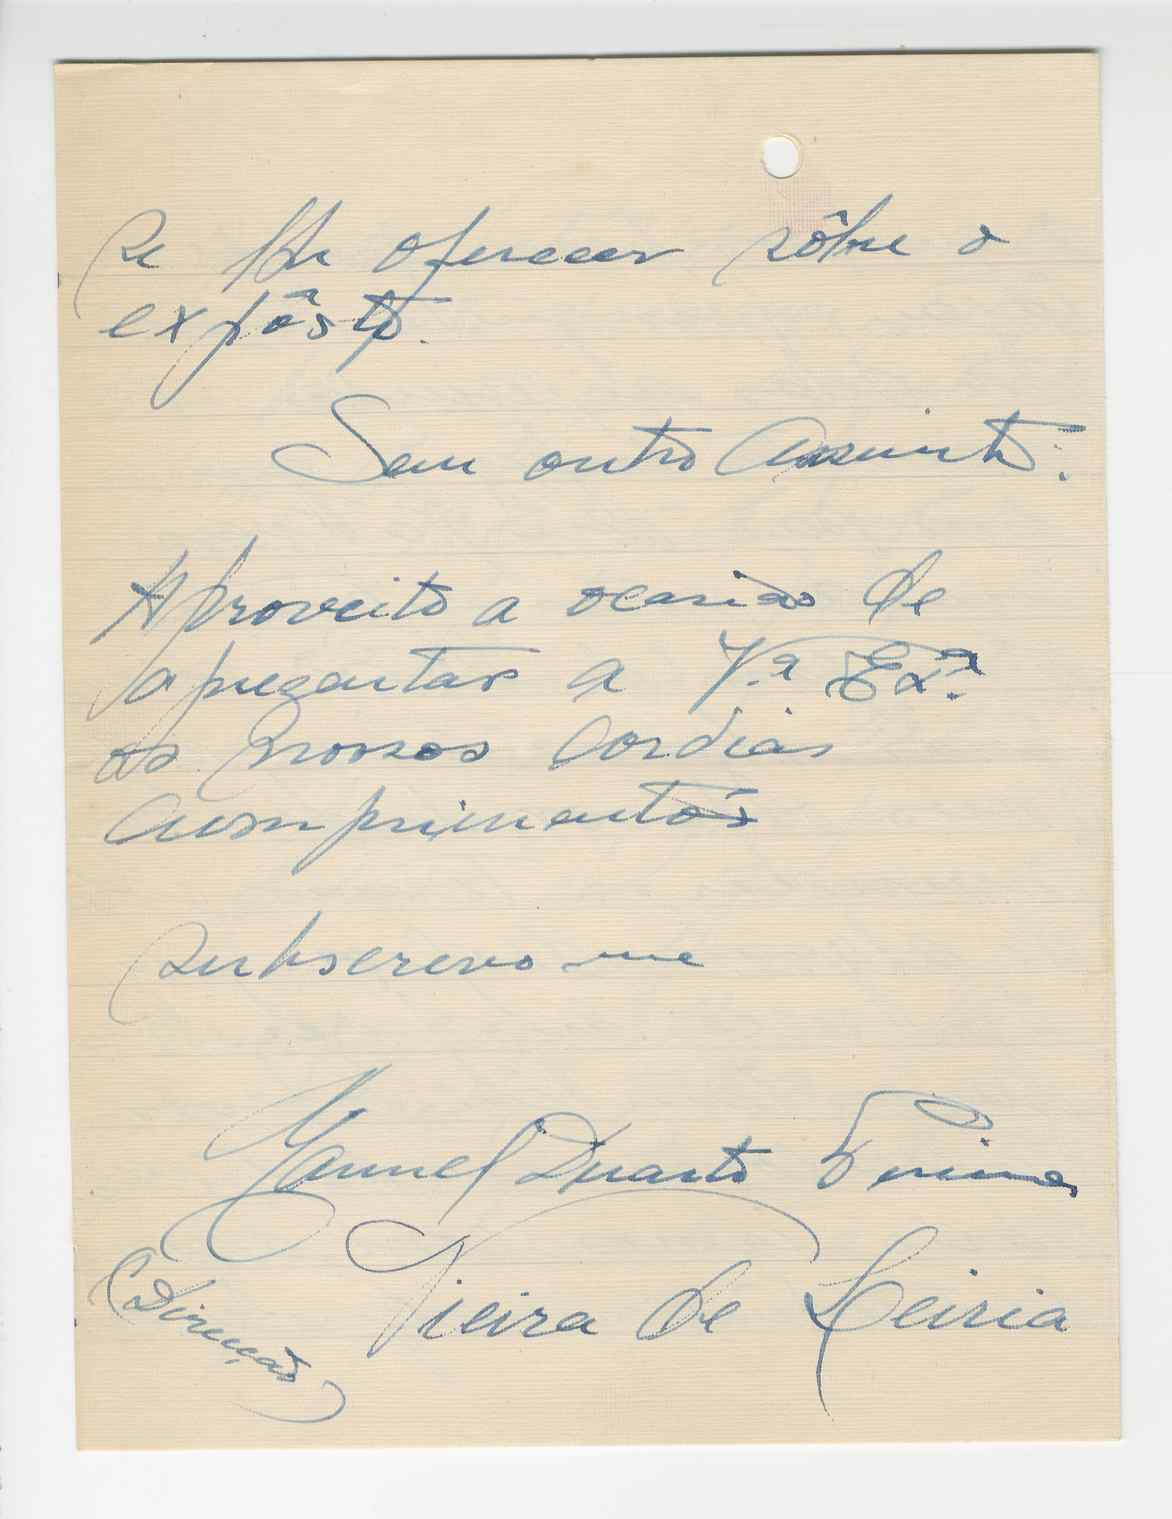 se lhe oferecer sôbre o
expôsto.
Sem outro assunto:
Aproveito a ocasião de
apresentar a V.ª Exª.
os nossos cordiais
cumprimentos
subscrevo-me
Manuel Duarto
Vieira de Leiria
(Direcção)